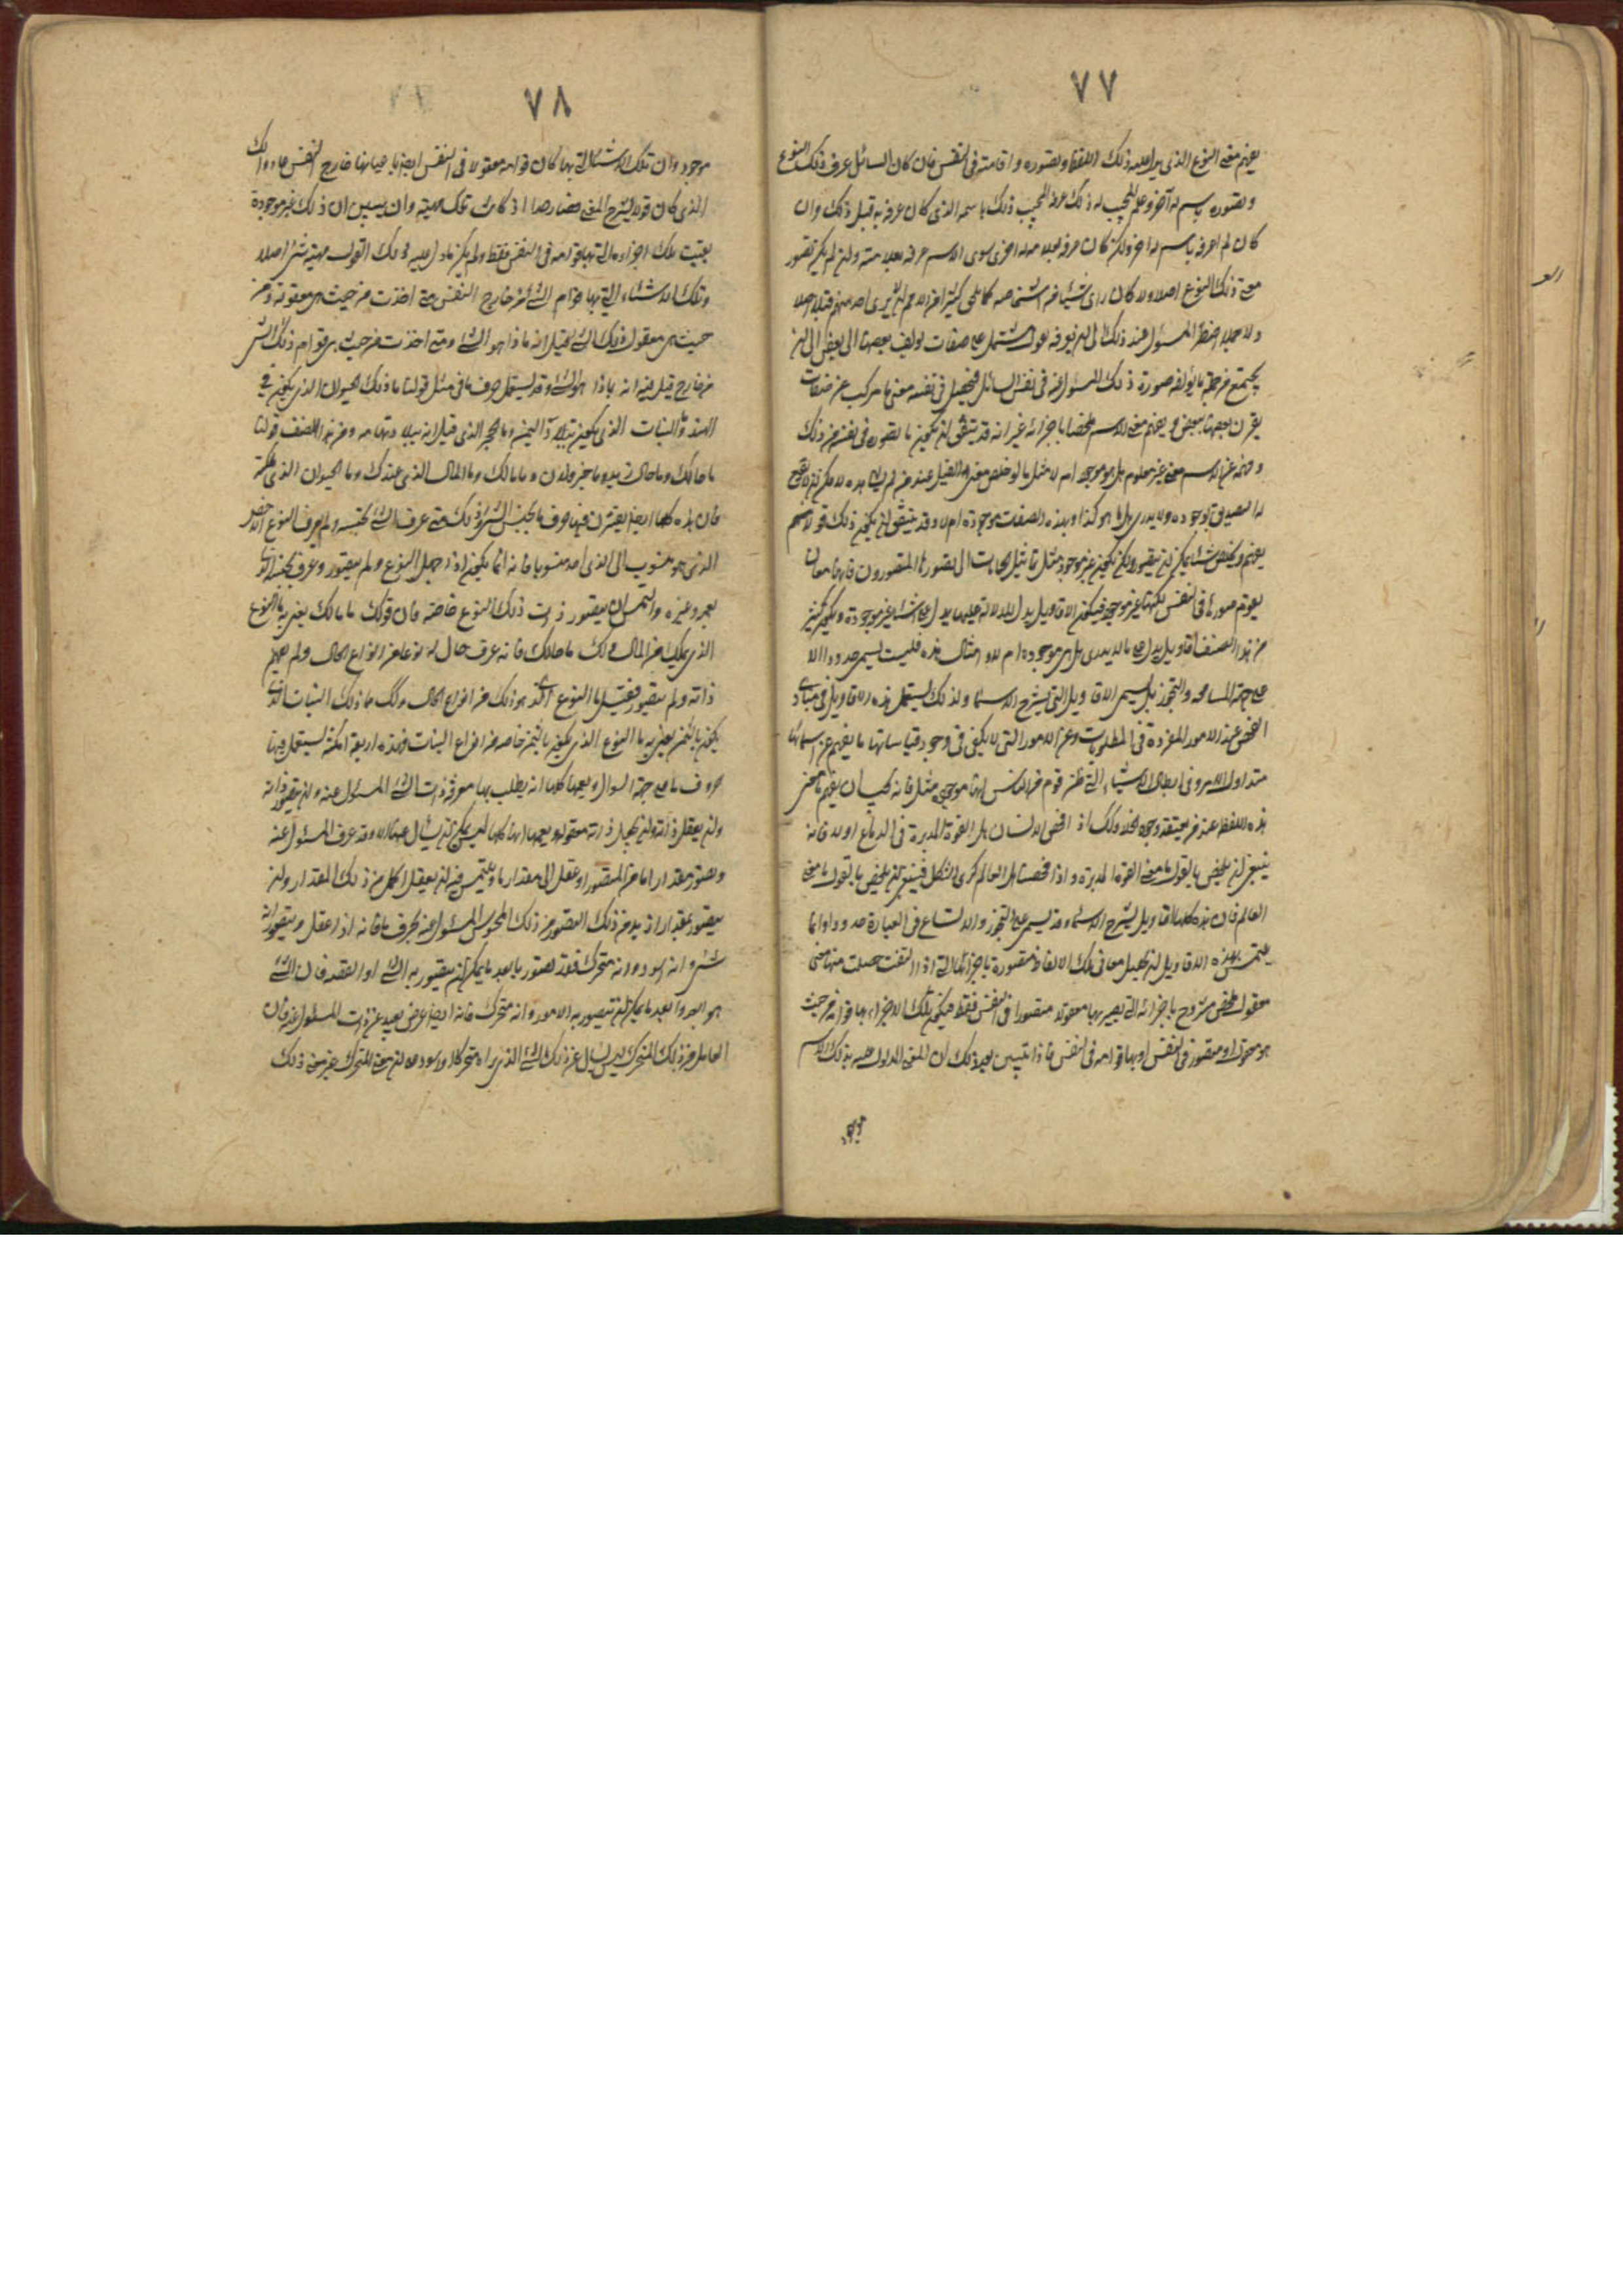 ٧٧
يفهم معنى النوع الذى يدل عليه ذلك اللفظ وتصوره واقامته فى النفس فان كان السائل عرف ذلك النوع
وتصوره باسم له آخر وعلم المجيب له ذلك عرفه المجيب ذلك باسمه الذى كان عرفه به قبل ذلك وان
كان لم يعرفه باسم له اخر ولكن كان عرفه بعلامة له اخرى سوى الاسم عرفه بعلامته وان لم يكن تصور
معنى ذلك النوع اصلا ولا كان راى شيئا من اشخاصه
ولا مجملا اضطر المسئول عند ذلك الى ان يعرفه بقول يشتمل على صفات يؤلف بعضها الى بعض الى ان
يجتمع من جملة ما يؤلفه صورة ذلك المسئول عنه فى نفس السائل فيحصل فى نفسه معنى ما مركب عن صفات
يقرن بعضها ببعض ويفهم معنى الاسم ملخصا باجزائه غير انه قد يتفق ان يكون ما تصوره فى نفسه من ذلك
وفهمه عن الاسم معنى غير معلوم هل هو موجود ام لا مثل ما لو لخص معنى الفيل عند من لم يشاهده
ولا يدرى هل ما هو كذا وبهذه الصفات موجود ام لا وقد يتفق ان يكون ذلك قولا
يفهم ويلخص شيئا يمكن ان يتصور ولكن يكون غير موجود مثل تماثيل الحمامات التى تصورها المصورون فانها معان
تقوم صورتها فى النفس لكنها غير موجودة فيكون الاقاويل يدل عليها يدل على اشياء غير موجودة ويكون كثير
من هذا الصنف اقاويل يدل على ما لا يدرى هل هى موجودة ام لا وامثال هذه فليست تسمى حدودا الا
على جهة المسامحة والتجوز بل تسمى الاقاويل التى تشرح الاسماء ولذلك يستعمل هذه الاقاويل فى مبادى
الفحص عن الامور المفردة فى المطلوبات وعن الامور التى لا يكتفى فى وجود قياساتها ما يفهم عن اسمائها
متداول الامر وفى ابطال الاشياء التى ظن قوم من الناس انها موجودة مثل فانه يجب ان يفهم ما معنى
هذه اللفظة عند من يعتقد وجود الخلا وكذلك اذا فحص الانسان هل القوة المدبرة فى الدماغ او لا فانه
ينبغى ان يلخص بالقول ما معنى القوة المدبرة واذا فحصنا هل العالم كرى الشكل فينبغى ان يلخص بالقول ما معنى
العالم فان هذه كلها اقاويل تشرح الاسماء وقد تسمى على التجوز والاتساع فى العبارة حدودا وانما
يلتمس بهذه الاقاويل ان تحصل معانى تلك الالفاظ متصورة باجزائها التى اذا ائتلفت حصلت منها معنى
معقول ملخص مشروح باجزائه التى يصير بها معقولا متصورا فى النفس فقط فيكون تلك الاجزاء بها قوامه من حيث
هو معقول او متصور فى النفس او بها قوامه فى النفس فاذا تبين بعد ذلك ان المعنى المدلول عليه بذلك الاسم
موجود
٧٨
موجود وان تلك الاشياء التى بها كان قوامه معقولا فى النفس ايضا باعيانها خارج النفس عاد ذلك
الذى كان قولا يشرح المعنى فصار حدا اذ كانت تلك مهيته وان تبين ان ذلك غير موجودة
بقيت تلك اجزاؤه التى بها قوامه فى النفس فقط ولم يكن ما دل عليه ذلك القول مهية شئ اصلا
وتلك الاشياء التى بها قوام الشئ من خارج النفس متى اخذت من حيث هى معقولة ومن
حيث هى معقول ذلك الشئ قيل انه ماذا هو الشئ ومتى اخذت من حيث هى قوام ذلك الشئ
من خارج قيل فيه انه بماذا هو الشئ وقد يستعمل حرف ما فى مثل قولنا ما ذلك الحيوان الذى يكون فى
الهند وما النبات الذى يكون ببلاد اليمن وما الحجر الذى قيل انه ببلاد تهامه ومن هذا الصنف قولنا
ما حالك وما حال زيد وما خبر فلان وما مالك وما المال الذى عندك وما الحيوان الذى
فان هذه كلها ايضا يقترن فيها حرف ما بجنس الشئ وذلك متى عرف الشئ بجنسه ولم يعرف النوع الاخص
الذى هو منسوب الى الذى اخذ منسوبا فانه انما يكون اذا جهل النوع ولم يتصور وعرف بجنسه الذى
يعمه وغيره والتمس ان يتصور ذات ذلك النوع خاصة فان قولك ما مالك يعنى به ما النوع
الذى تملك من المال وكذلك ما حالك فانه عرف حال له نوع ما من انواع الحال ولم يفهم
ذاته ولم يتصور فقيل ما النوع الذى هو ذلك من انواع الحال وكذلك ما ذلك النبات الذى
يكون باليمن يعنى به ما النوع الذى يكون باليمن خاصة من انواع النبات فهذه اربعة امكنة يستعمل فيها
حرف ما على جهة السوال ويعمها كلها انه يطلب بها معرفة ذات الشئ المسئول عنه وان يتصور ذاته
وان يعقل ذاته وان تحصل ذاته معقولة ويعمها انها كلها ليس يمكن ان يسأل عنها الا وقد عرف المسئول عنه
وتصور مقدارا ما من التصور او عقل الى مقدار ما ويلتمس فيه ان يعقل اكمل من ذلك المقدار وان
يتصور بمقدار ازيد من ذلك التصور من ذلك المحسوس المسئول عنه بحرف ما فانه اذا عقل وتصور انه
شئ وانه اسود وانه متحرك فقد تصور بابعد ما يمكن ان يتصور به الشئ او العقد فان الشئ
هو ابعد ما يمكن ان يتصور به الامور وانه متحرك فانه ايضا عرض بعيد عن ذات المسئول عنه فان
العامل من ذلك المتحرك ليس يسأل عن ذلك الشئ الذى يراه متحركا ولا اسود معنى المتحرك غير معنى ذلك